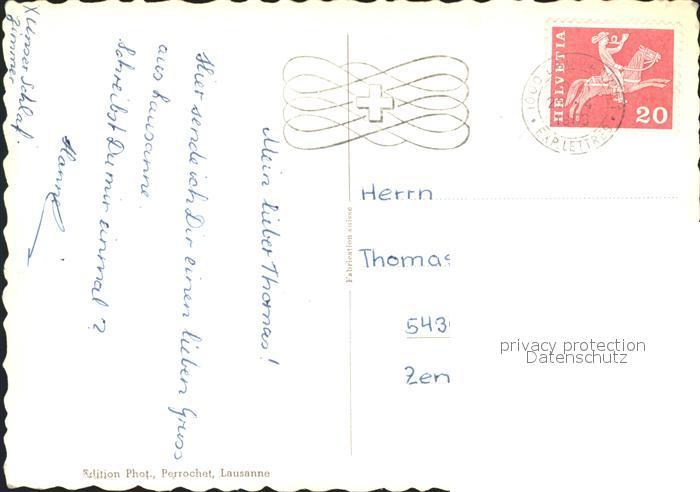 Mein lieber Thomas!
Hier sende ich Dir einen lieben Gruss
aus Lausanne.
Schreibst Du mir einmal?
Hanne
X Unser Schlaf-
zimmer
Fabrication suisse
HELVETIA
20
EXP. LETTRES
Herrn
Thomas
543
Zen
privacy protection
Datenschutz
Edition Phot., Perrochet, Lausanne